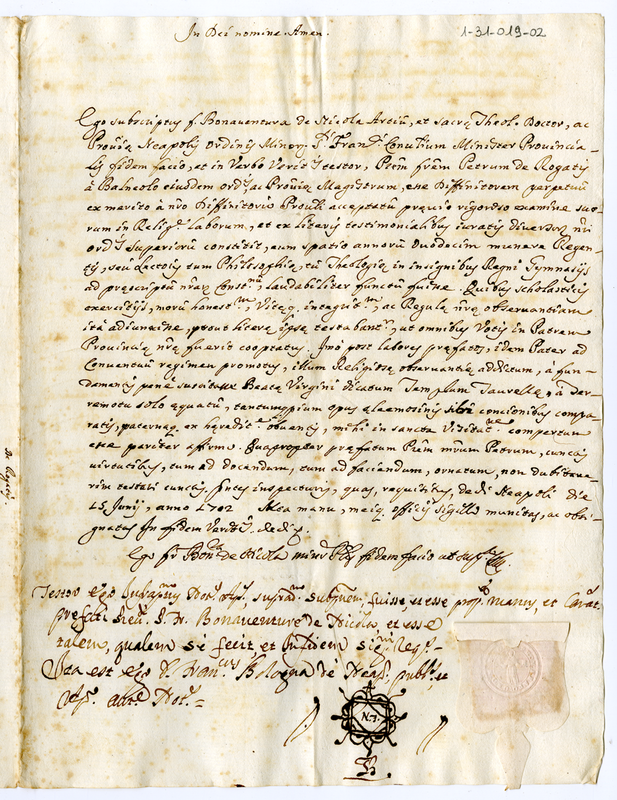 In Dei nomine. Amen.
1-31-019-02
Ego subscriptus f. Bonaventura de Nicola Artiũ, et Sacrę Theol. Doctor, ac
Provĩę Neapolis Ordinis Minorũ S. Franc. Convtium Minister Provincia-
lis fidem facio, et in Verbo Verits testor, Prem frem Petrum de Rogatis
à Balneolo eiusdem Ords, ac Provĩę Magistrum, esse Diffinitorem perpetuũ
ex merito à nro Diffinitorio Prouli acceptatũ pręvio rigoroso examine suo-
rum in Relige laborum, et ex literis testimonialibus iuratis diversorũ nri
Ords Superiorũ constitit, eum spatio annorũ duodecim munere Regen-
tis, seu Lectoris tum Philosophię, tũ Theologię in insignibus Regni Gymnasijs
ad pręscriptũ nrarũ Constnũ laudabiliter functũ fuisse. Quibus scholasticis
exercitijs, morũ honestm, Vitęq. integritm, ac Regulę nrę observantiam
ità adiunxisse, prout literę ipsę testabantr, ut omnibus Votis in Patrem
Provincię nrę fuerit cooptatus. Imò post labores pręfatos, idem Pater ad
Conventuũ regimen promotus, illum Religiosę observantię addictum, à fun-
damentis penè suscitasse Beatę Virgini dicatum Templum Taurellę, à ter-
remotu solo ęquatũ, tantumq; pium opus elaemosinis sibi concionibus compa-
ratis, paternaq. ex hęredite obventis, mihi in sancta Visitatne compertum
esse pariter affirmo. Quapropter pręfatum Prem mrum Petrum, cunctis
virtutibus, tum ad docendum, tum ad faciendum, ornatum, non dubitave-
rim testari cunctis pntes inspecturis, quas, requisitus, dedi Neapoli die
15 Junij, anno 1702 Mea manu, meiq. officij Sigillo munitas, ac obsi-
gnatas In fidem Verits. dedi.
Ego fr Bonra de Nicola minr Plis fidem facio ut supra
Testor ego Infraptus Nots Aps, supram subsnem fuisse et esse prop. manus, et Carat.
prefati Rev. P. M. Bonaventure de Nicola et esse
talem, qualem se fecit, et In fidem sigvi Reqs.
Ita est ego D. Francus Bologna de Neap. publs. et
Aps. autte Nots.=
N.F.
De Rogatis